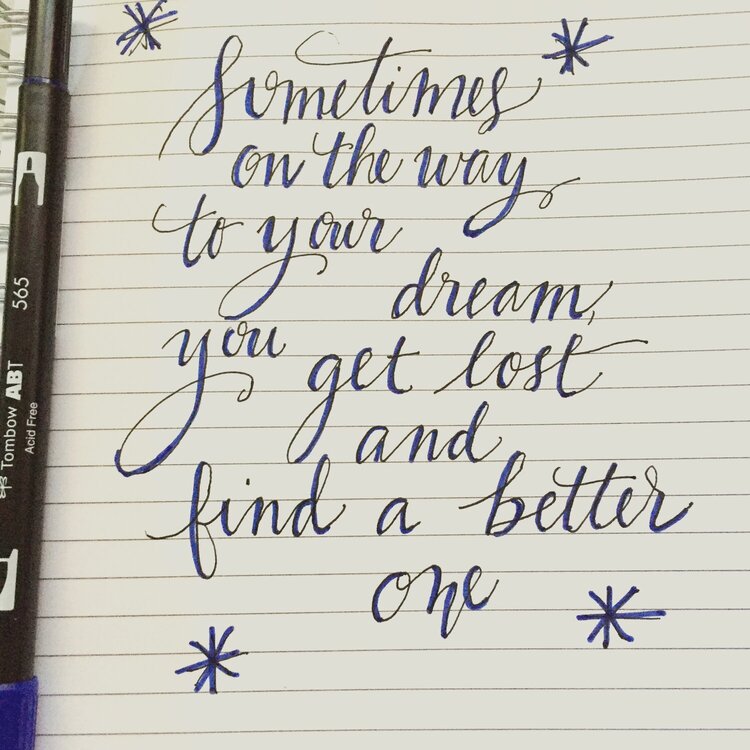 Sometimes
on the way
to your
dream,
you get lost
and
find a better
one
565
Tombow ABT
Acid Free